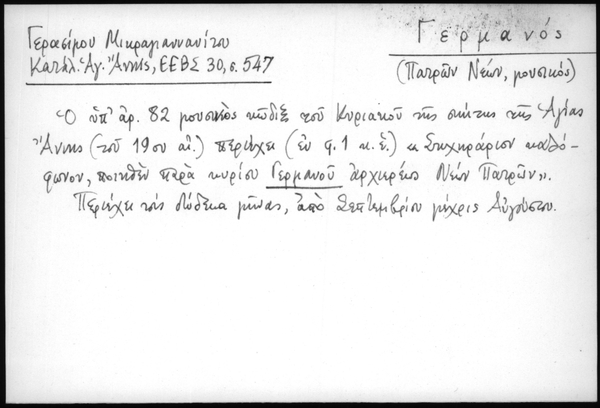 Γερασίμου Μικραγιαννανίτου
Κατάλ. Ἁγ. Ἄννης, ΕΕΒΣ 30, σ. 547
Γερμανός
(Πατρῶν Νέων, μουσικός)
Ὁ ὑπ' ἀρ. 82 μουσικὸς κῶδιξ τοῦ Κυριακοῦ τῆς σκήτης τῆς Ἁγίας
Ἄννης (τοῦ 19ου αἰ.) περιέχει (ἐν φ. 1 κ.ἑ.) « Στιχηράριον καλό-
φωνον, ποιηθὲν παρὰ κυρίου Γερμανοῦ ἀρχιερέως Νέων Πατρῶν».
Περιέχει τοὺς δώδεκα μῆνας, ἀπὸ Σεπτεμβρίου μέχρις Αὐγούστου.